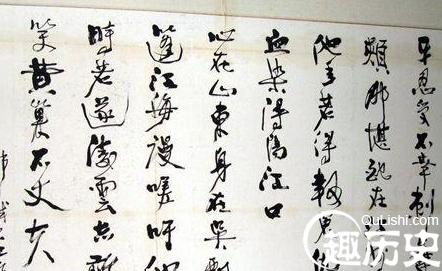 平忍受不幸刺
頰那堪配在江
他年若得報冤
血染潯陽江口
心在山東身在吳飄
蓬江海謾嗟吁他
時若遂凌雲志敢
笑黄巢不丈夫
QuLishi.com
趣历史